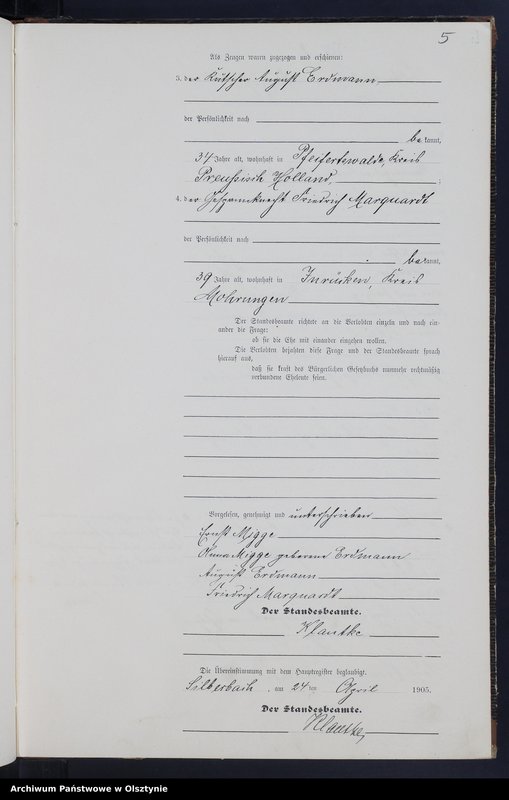 5
Als Zeugen waren zugezogen und erschienen:
3. der Kutscher August Erdmann
der Persönlichkeit nach
be kannt,
34 Jahre alt, wohnhaft in Pfeifertswalde, Kreis
Preußisch Holland,
4. der Gespannknecht Friedrich Marquardt
der Persönlichkeit nach
be kannt,
39 Jahre alt, wohnhaft in Kreis
Mohrungen
Der Standesbeamte richtete an die Verlobten einzeln und nach ein-
ander die Frage:
ob sie die Ehe mit einander eingehen wollen.
Die Verlobten bejahten diese Frage und der Standesbeamte sprach
hierauf aus,
daß sie kraft des Bürgerlichen Gesetzbuchs nunmehr rechtmäßig
verbundene Eheleute seien.
Vorgelesen, genehmigt und unterschrieben
Ernst Migge
Anna Migge geborene Erdmann
August Erdmann
Friedrich Marquardt
Der Standesbeamte.
Klautke
Die Übereinstimmung mit dem Hauptregister beglaubigt.
Silberbach, am 24 ten April 1905.
Der Standesbeamte.
Klautke
Archiwum Państwowe w Olsztynie